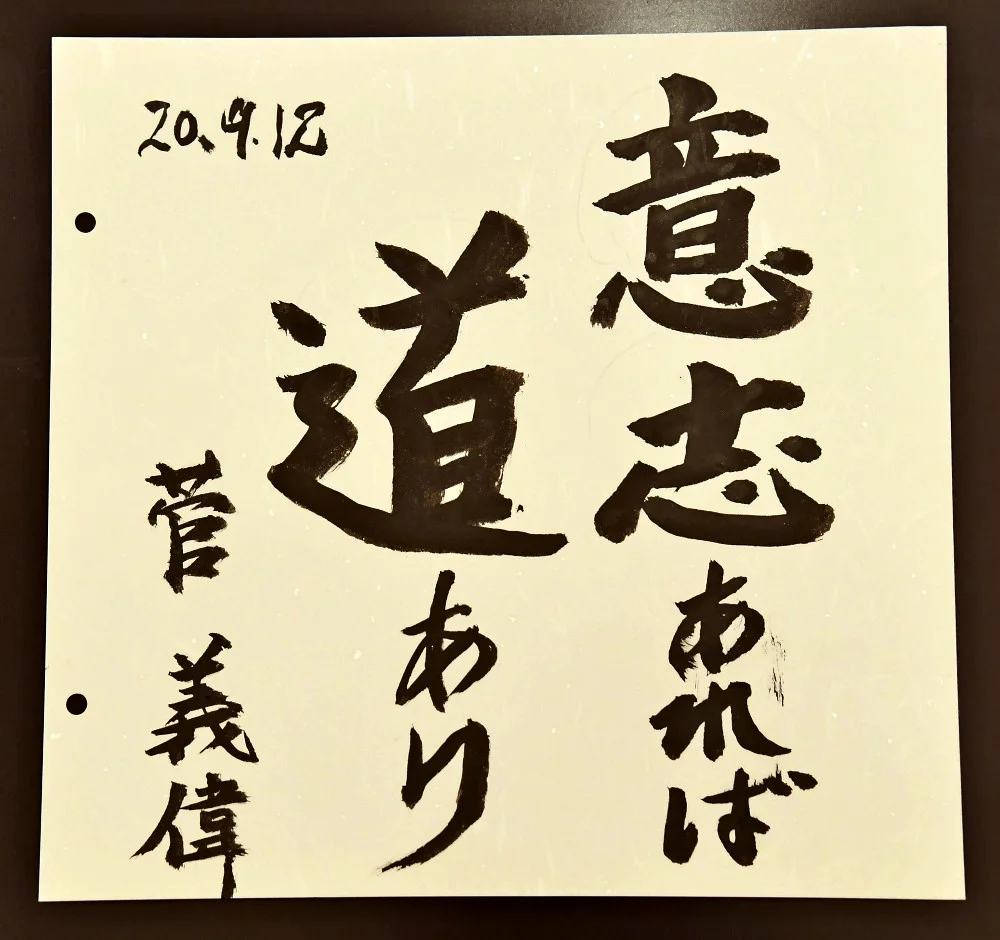 意志あれば
道あり
菅義偉
20.9.12